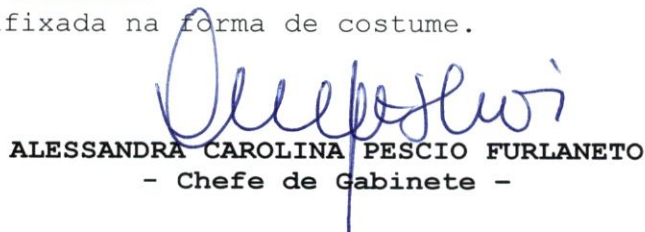 fixada na forma de costume.
ALESSANDRA CAROLINA PESCIO FURLANETO
- Chefe de Gabinete -